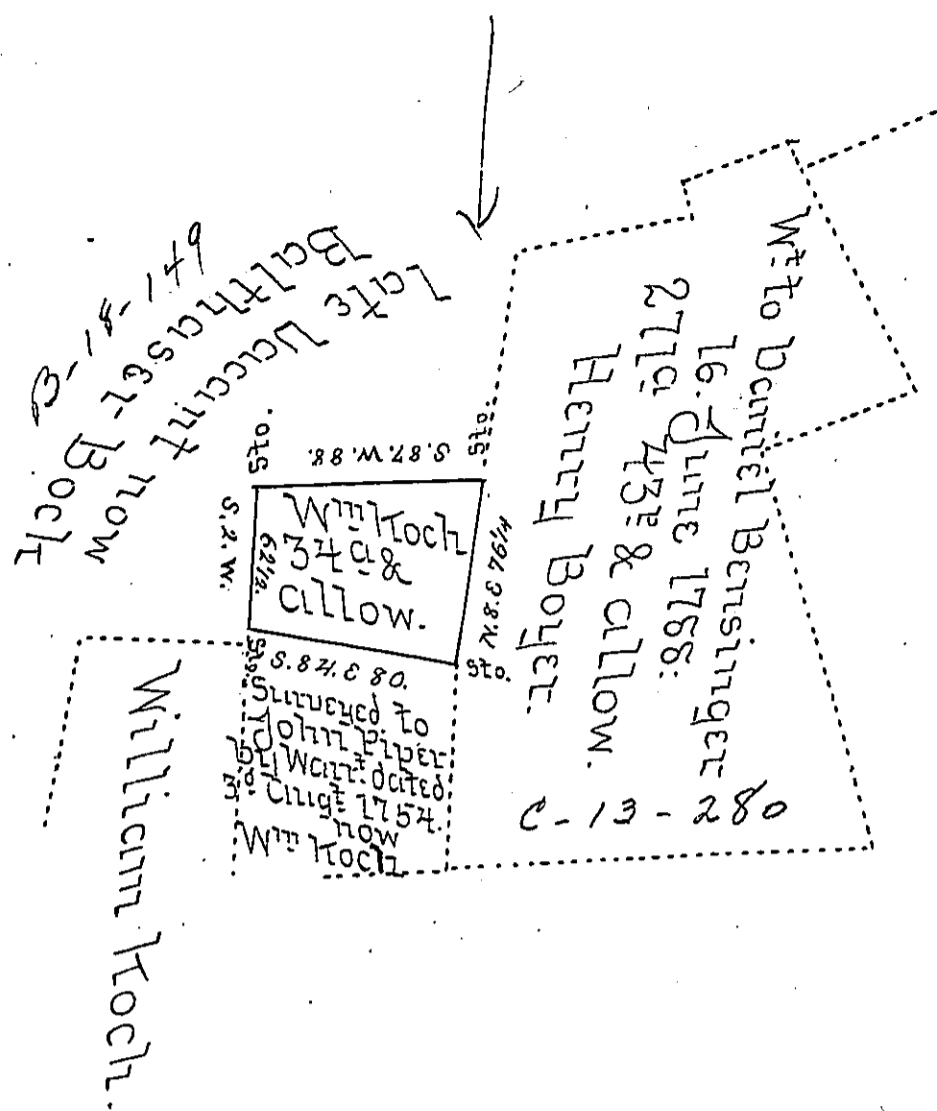 B-18-149
Late Vacant now
Balthaser Bock
Sto.
S. 87. W. 88.
Sto.
S. 2. W.
62½.
Wm Koch
34 a &
allow.
N. 8. E 76¼
Sto.
S. 84. E 80.
Sto.
Surveyed to
John Piper
by Warrt dated
3d Augt 1754.
now
Wm Koch
William Koch.
Wt to Daniel Bensinger
16. June 1768:
271a 43p & allow.
Henry Boyer
C-13-280